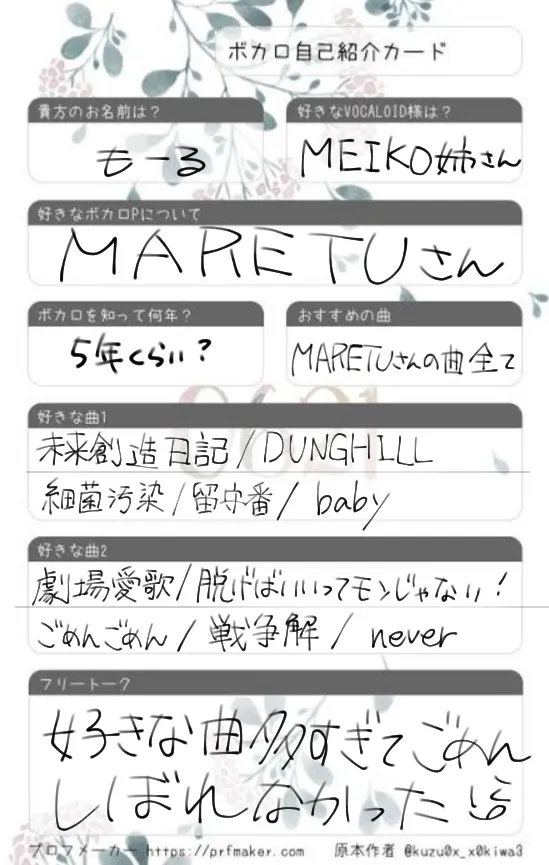 ボカロ自己紹介カード
貴方のお名前は？
もーる
好きなVOCALOID様は？
MEIKO姉さん
好きなボカロPについて
MARETUさん
ボカロを知って何年？
5年くらい？
おすすめの曲
MARETUさんの曲全て
0621
好きな曲1
未来創造日記/DUNGHILL
細菌汚染/留守番/baby
好きな曲2
劇場愛歌/脱げばいいってモンじゃない！
ごめんごめん/戦争解/never
フリートーク
好きな曲多すぎてごめん
しぼれなかった
プロフメーカー https://prfmaker.com
原本作者 @kuzu0x_x0kiwa3